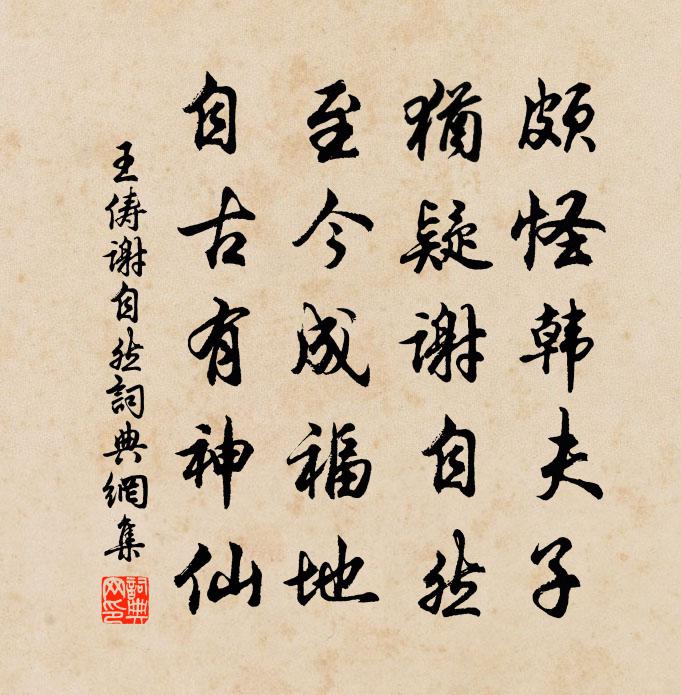 頗怪韩夫子
猶疑谢自然
至今成福地
自古有神仙
王俦谢自然詞典網集
詞典网印